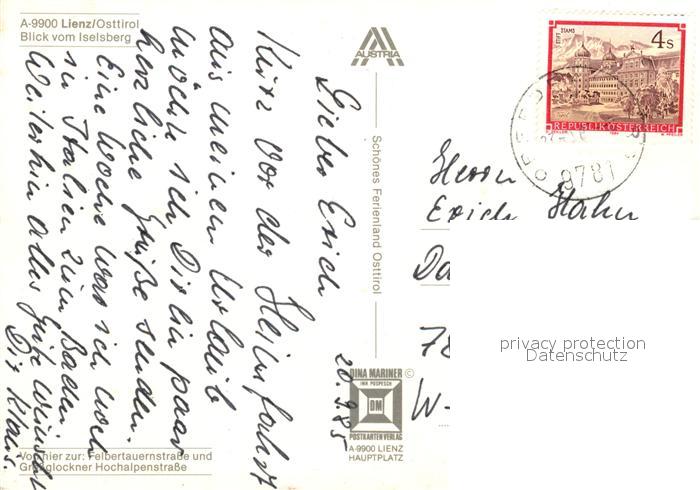 A-9900 Lienz/Osttirol
Blick vom Iselsberg
AUSTRIA
Schönes Ferienland Osttirol
DINA MARINER ©
INH POSPESCH
DM
POSTKARTENVERLAG
A-9900 LIENZ
HAUPTPLATZ
Von hier zur: Felbertauernstraße und
Großglockner Hochalpenstraße
20.9.85
Lieber Erich
Kurz vor der Heimfahrt
aus meinem Urlaub
möchte ich Dir ein paar
herzliche Grüße senden.
Eine Woche war ich noch
in Italien zum Baden.
Weiterhin alles Gute wünscht
Dir Klaus.
STIFT STAMS
4 S
REPUBLIK ÖSTERREICH
9781
Herrn
Erich Hahn
Da
78
W-
privacy protection
Datenschutz